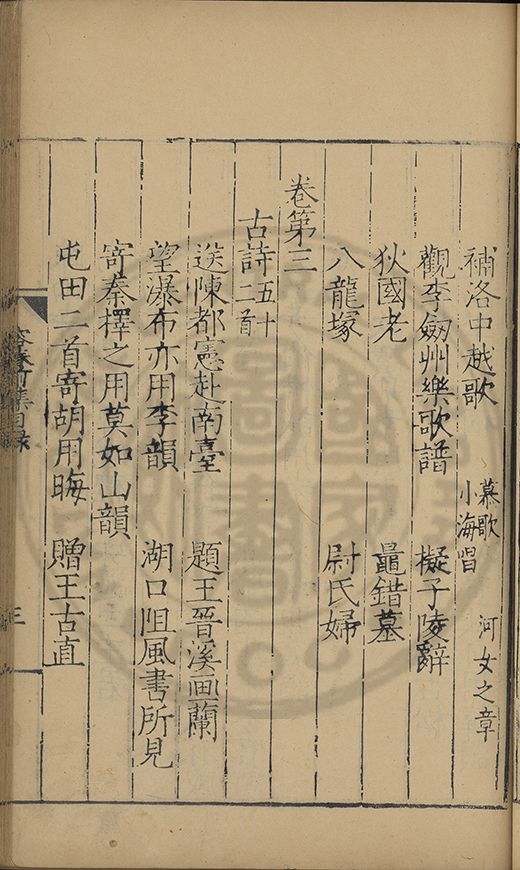 補洛中越歌 慕歌 小海唱 河女之章
觀李劒州樂歌譜 擬子陵辭
狄國老 鼂錯墓
八龍塚 尉氏婦
卷第三
古詩五十二首
送陳都憲赴南臺 題王晉溪画蘭
望瀑布亦用李韻 湖口阻風書所見
寄秦擇之用莫如山韻
屯田二首寄胡用晦 贈王古直
三